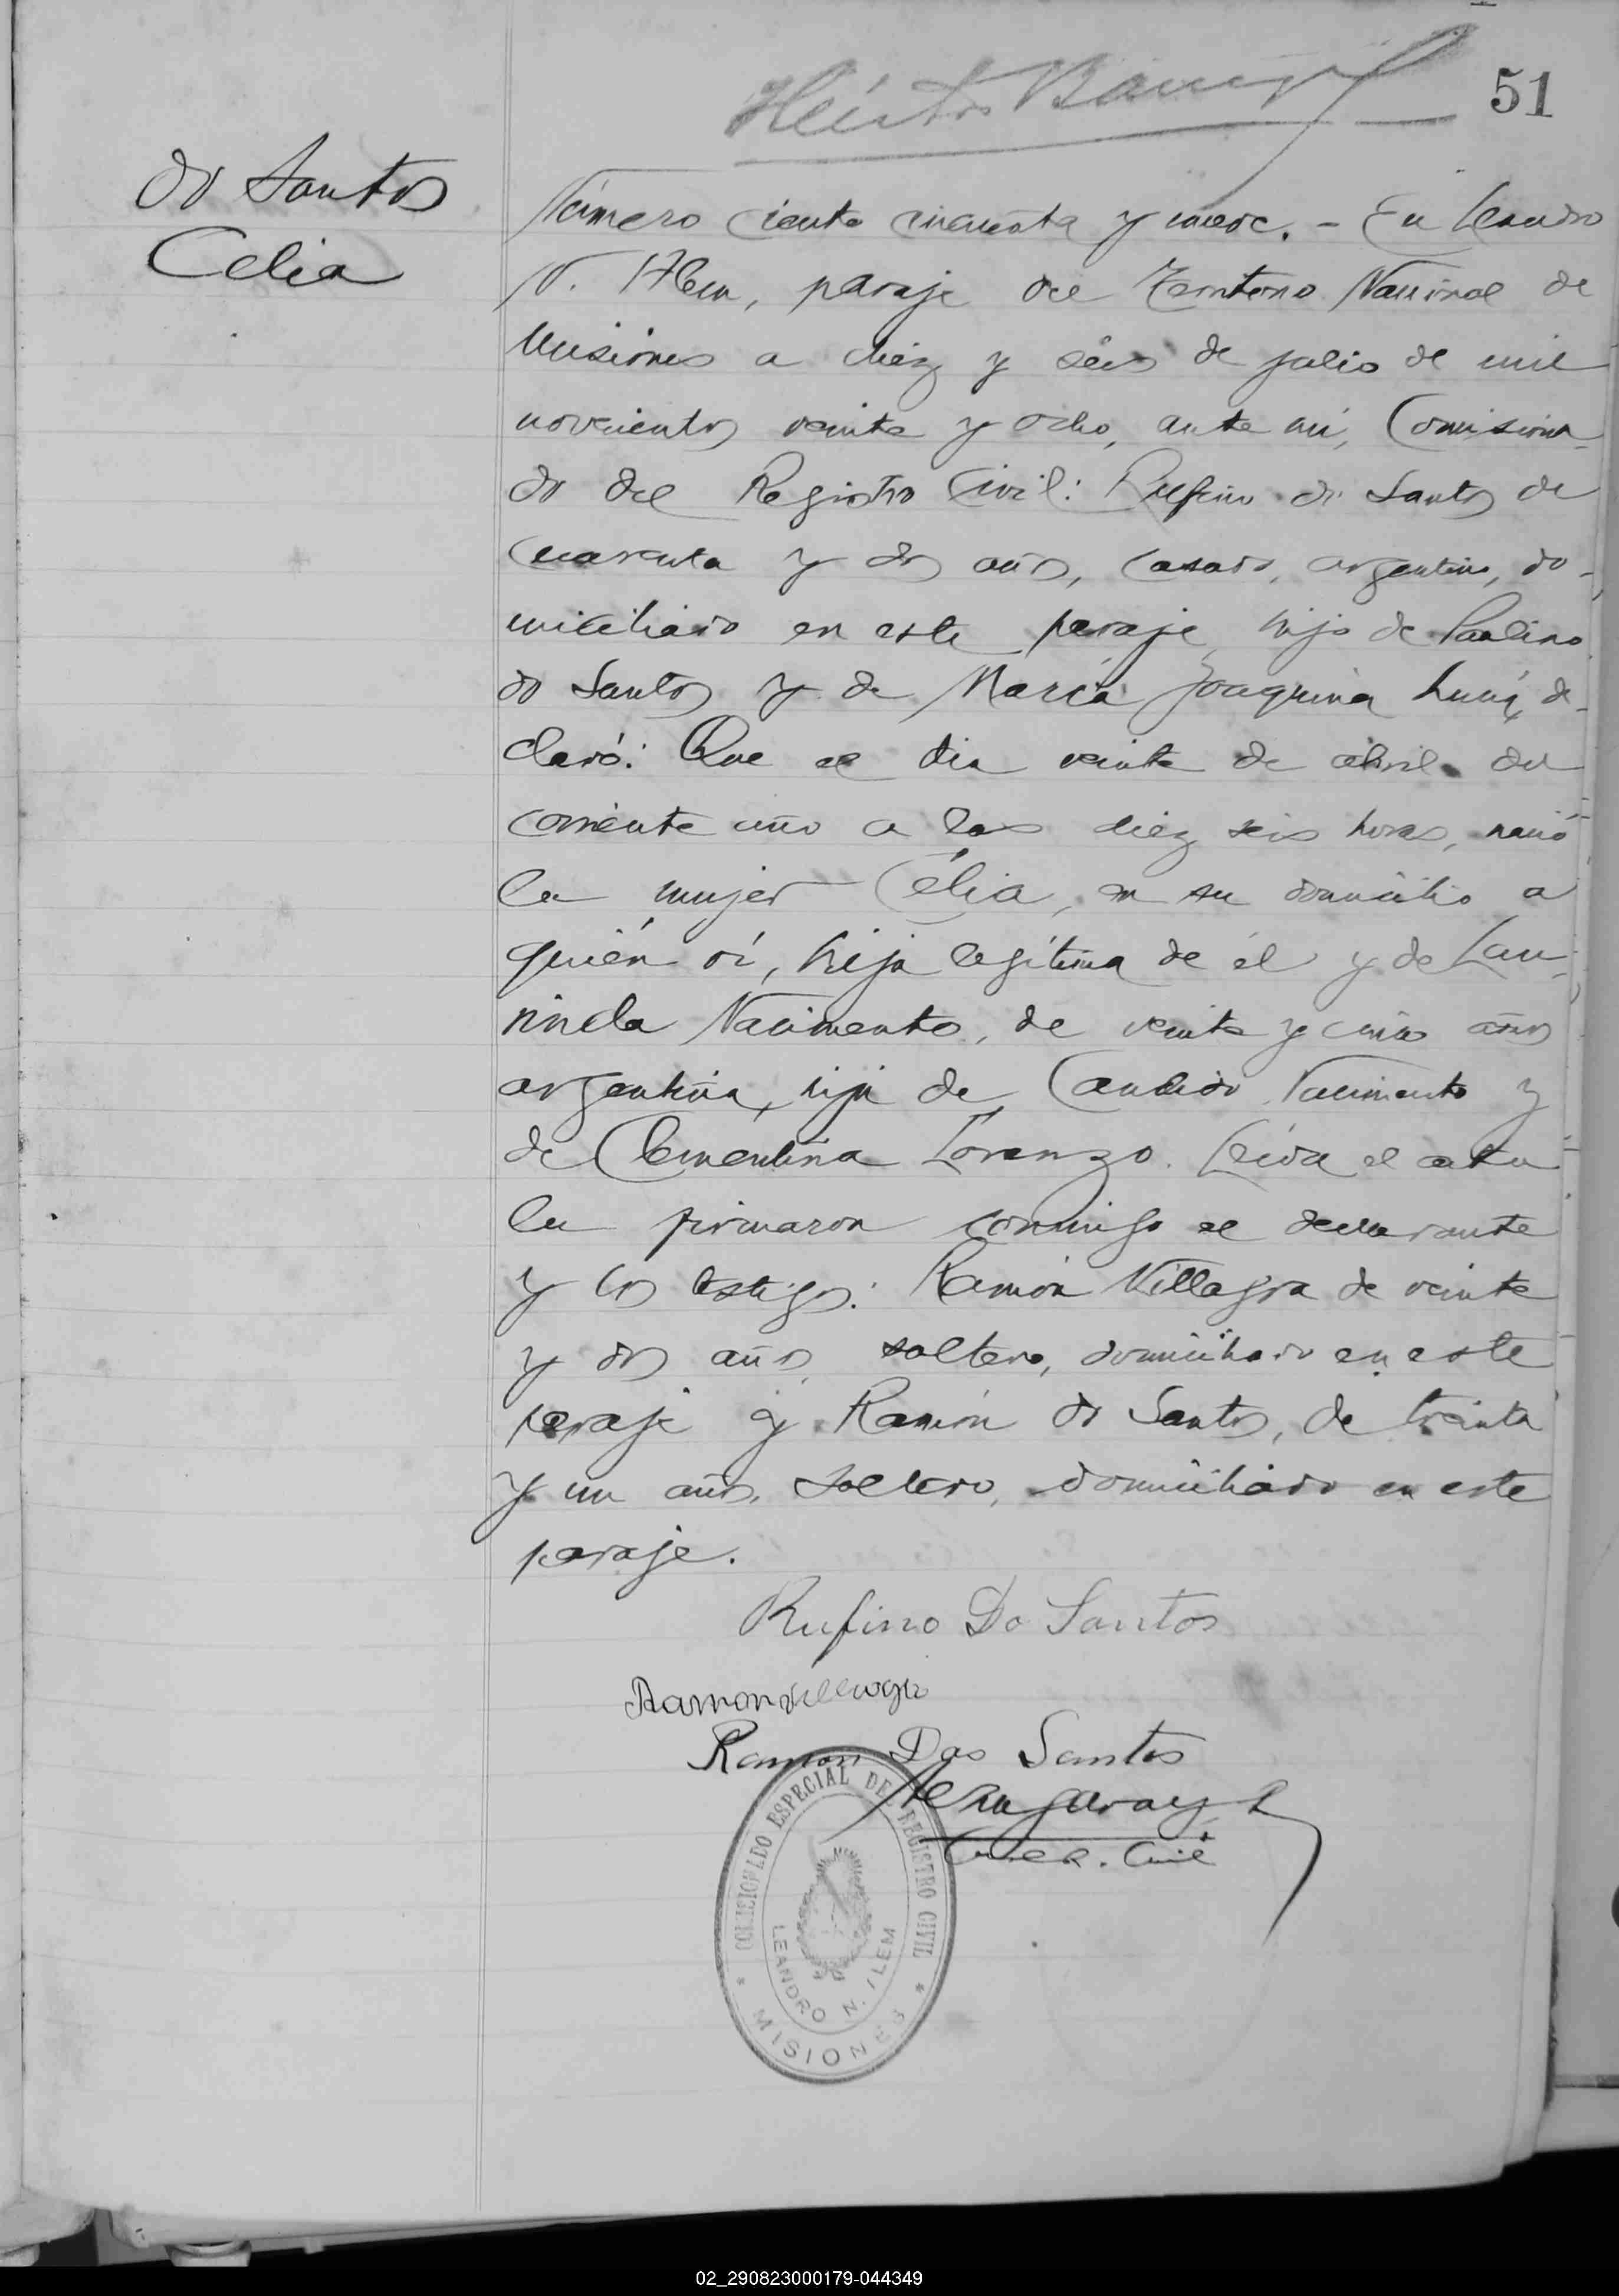 51
do Santos
Celia
Número ciento cincuenta y nueve. - En Leandro
N. Alem, paraje del Territorio Nacional de
Misiones a diez y séis de julio de mil
novecientos veinte y ocho, ante mí, Comisiona-
do del Registro Civil: Rufino do Santos de
cuarenta y dos años, casado, argentino, do-
miciliado en este paraje, hijo de Paulino
do Santos y de María Joaquina de-
claró: Que el dia veinte de abril del
corriente año a las diez seis horas, nació
la mujer Célia, en su domicilio a
quién ví, hija legítima de él y de Lau-
rinda Nacimento, de veinte y cinco años
argentina, hija de Candido Nacimento y
de Clementina Lorenzo. Leída el acta
la firmaron conmigo el declarante
y los testigos: Ramón Villagra de veinte
y dos años, soltero, domiciliado en este
paraje y Ramón do Santos, de treinta
y un años, soltero, domiciliado en este
paraje.
Rufino Do Santos
Ramon Villagra
Ramon Dos Santos
COMISIONADO ESPECIAL DEL REGISTRO CIVIL
LEANDRO N. ALEM
* MISIONES *
02_290823000179-044349